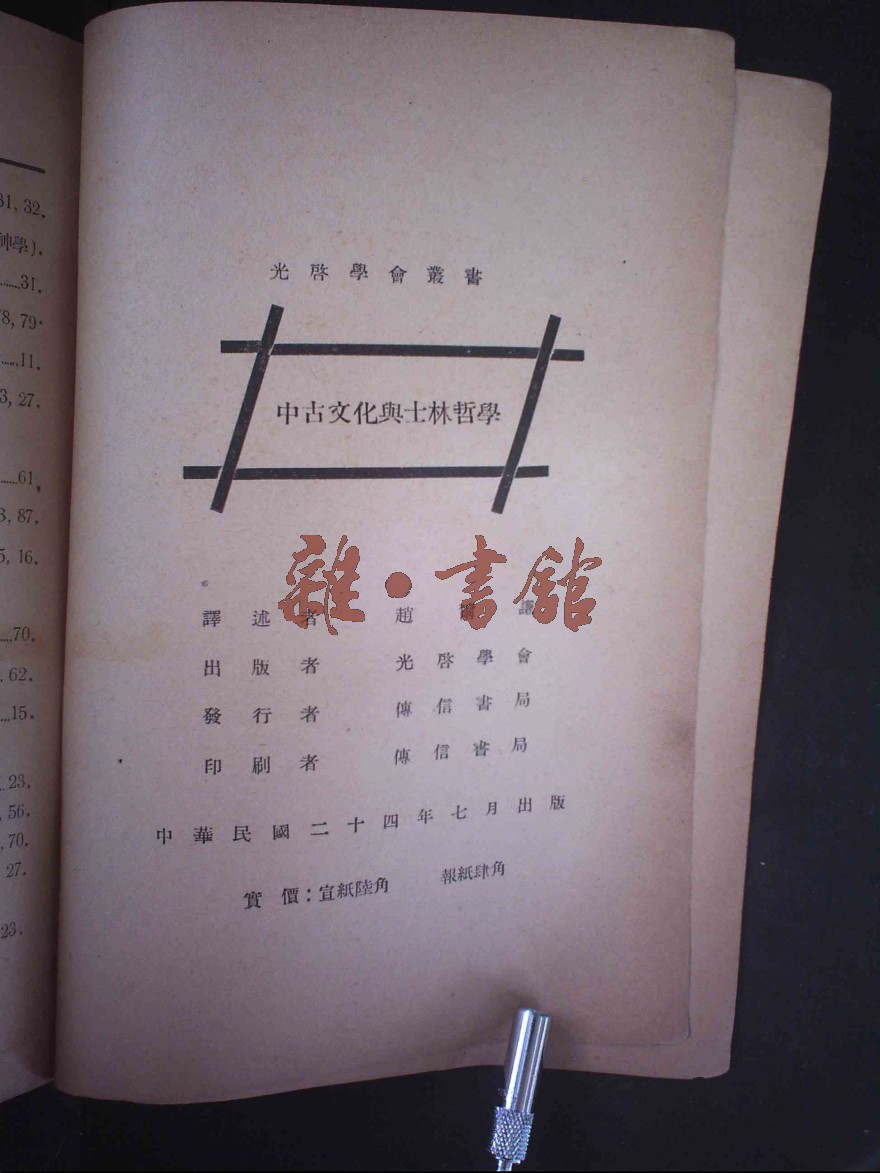 31, 32.
神學).
......31.
78, 79.
......11.
3, 27.
......61.
3, 87.
5, 16.
......70.
. 62.
......15.
. 23.
, 56.
, 70.
27.
23.
光啓學會叢書
中古文化與士林哲學
雜·書館
譯述者 趙
出版者 光啓學會
發行者 傳信書局
印刷者 傳信書局
中華民國二十四年七月出版
實價：宣紙陸角 報紙肆角